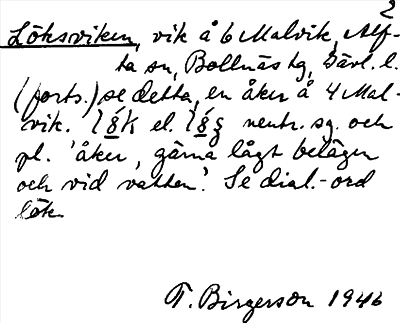 2
Löksviken, vik å 6 Malvik, Alf-
ta sn, Bollnäs tg, Gävl. l.
(forts.) se detta, en åker å 4 Mal-
vik. el. neutr. sg. och
pl. 'åker, gärna lågt belägen
och vid vatten'. Se dial.-ord
lök.
T. Birgerson 1946